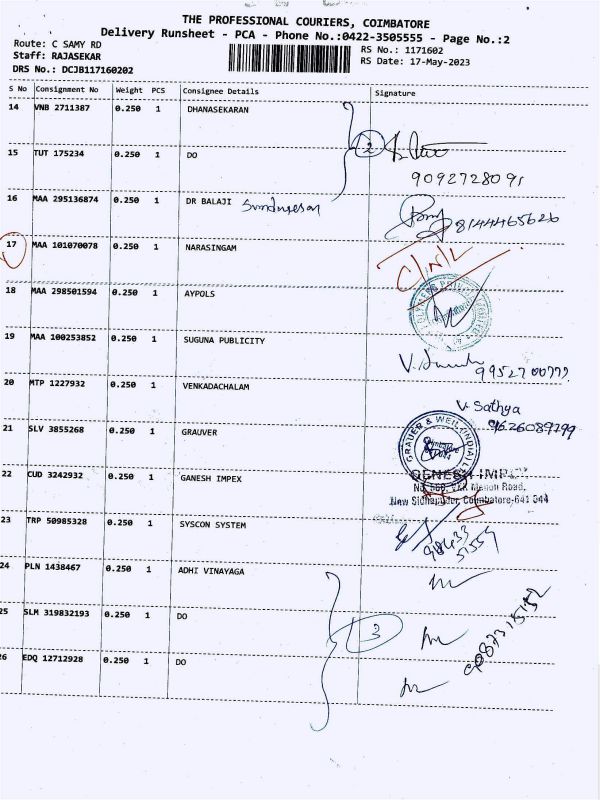 THE PROFESSIONAL COURIERS, COIMBATORE
Delivery Runsheet - PCA - Phone No.:0422-3505555 - Page No.:2
Route: C SAMY RD
Staff: RAJASEKAR
DRS No.: DCJB117160202
RS No.: 1171602
RS Date: 17-May-2023
S No Consignment No Weight PCS Consignee Details Signature
14 VNB 2711387 0.250 1 DHANASEKARAN
2
15 TUT 175234 0.250 1 DO
9092728091
16 MAA 295136874 0.250 1 DR BALAJI
8144465626
17 MAA 101070078 0.250 1 NARASINGAM
C/N/L
18 MAA 298501594 0.250 1 AYPOLS
19 MAA 100253852 0.250 1 SUGUNA PUBLICITY
20 MTP 1227932 0.250 1 VENKADACHALAM
V. Sathya
9626089299
21 SLV 3855268 0.250 1 GRAUVER
GRAUER & WEIL (INDIA) L
22 CUD 3242932 0.250 1 GANESH IMPEX
New Sidhapudur, Coimbatore-641 044
23 TRP 50985328 0.250 1 SYSCON SYSTEM
24 PLN 1438467 0.250 1 ADHI VINAYAGA
25 SLM 319832193 0.250 1 DO
3
26 EDQ 12712928 0.250 1 DO